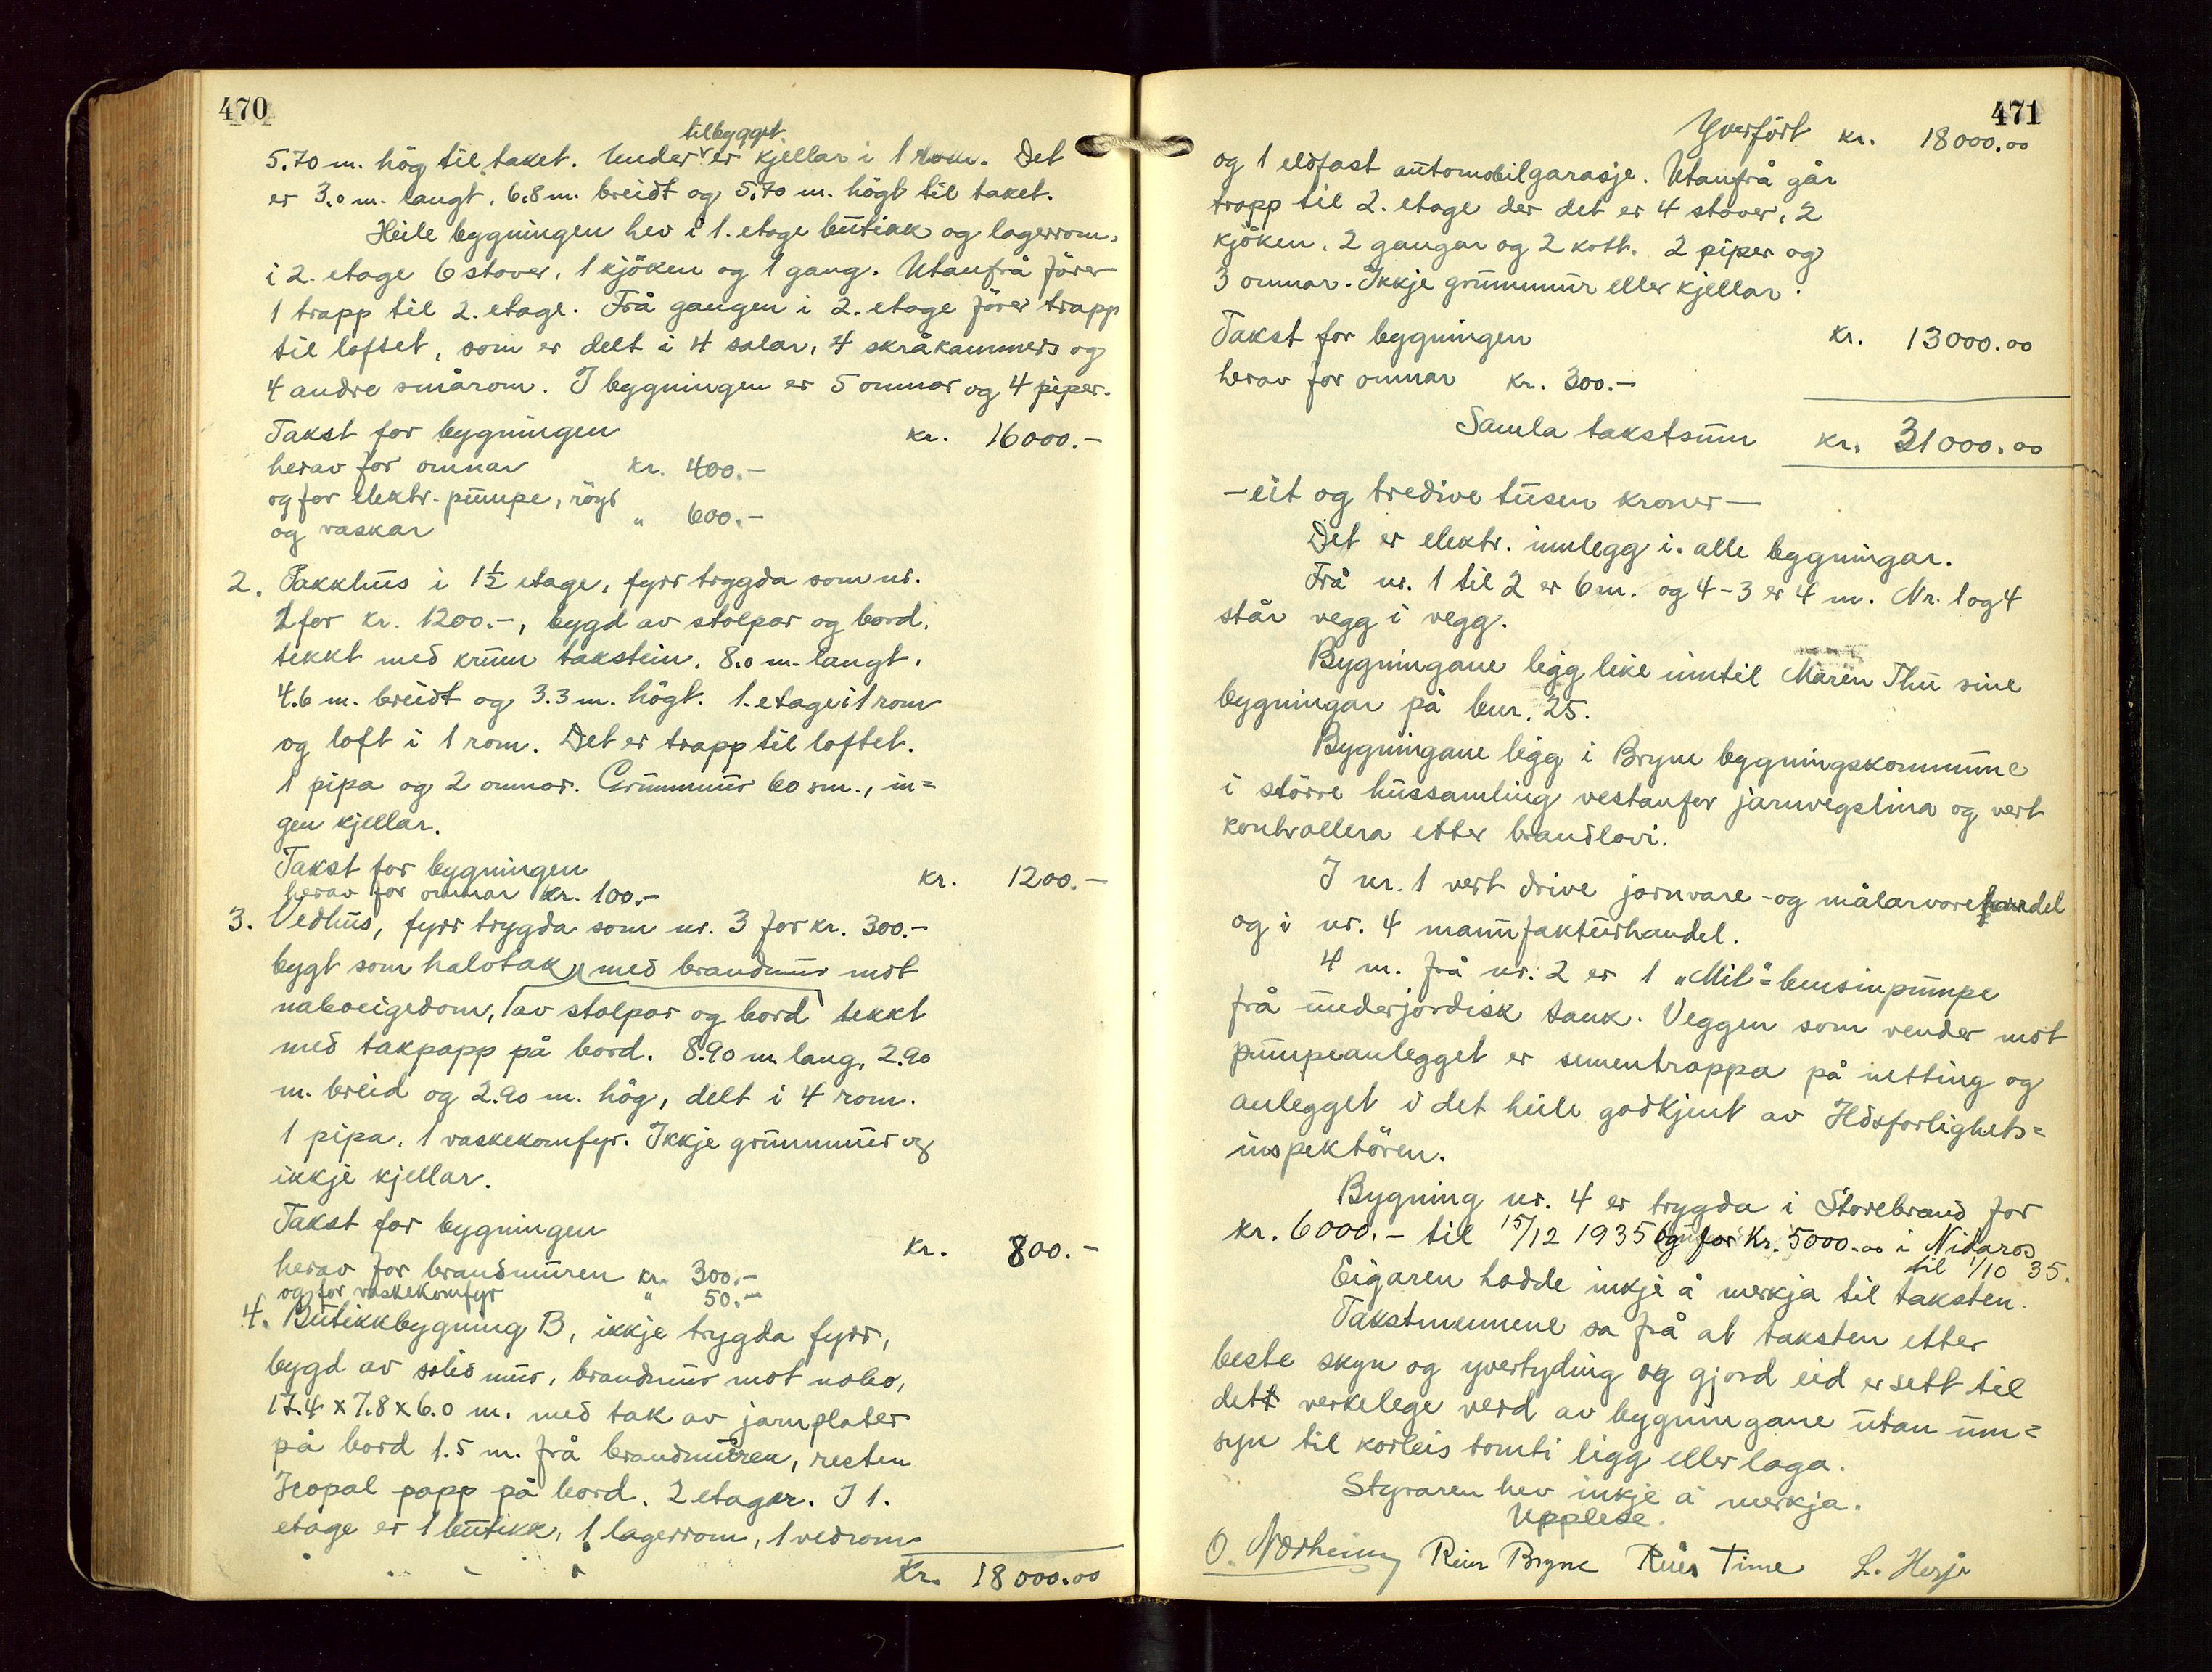 470
tilbygget
5.70 m. hög til taket. Under er kjellar i 1 rom. Det
er 3.0 m. langt, 6.8 m. breidt og 5.70 m. högt til taket.
Heile bygningen hev i 1. etage butikk og lagerrom,
i 2. etage 6 stover, 1 kjöken og 1 gang. Utanfrå förer
1 trapp til 2. etage. Frå gangen i 2. etage förer trapp
til loftet, som er delt i 4 salar, 4 skråkammers og
4 andre smårom. I bygningen er 5 omnar og 4 piper.
Takst for bygningen kr. 16000.-
herav for omnar kr. 400.-
og for elektr. pumpe, röyr
og vaskar " 600.-
2. Pakkhus i 1½ etage, fyrr trygda som nr.
2 for kr. 1200.-, bygd av stolpar og bord,
tekkt med krum takstein, 8.0 m. langt,
4.6 m. breidt og 3.3 m. högt. 1. etage i 1 rom
og loft i 1 rom. Det er trapp til loftet.
1 pipa og 2 omnar. Grunnmur 60 sm., in=
gen kjellar.
Takst for bygningen kr. 1200.-
herav for omnar kr. 100.-
3. Vedhus, fyrr trygda som nr. 3 for kr. 300.-
bygt som halvtak, med brandmur mot
naboeigedom, av stolpar og bord tekkt
med takpapp på bord. 8.90 m lang, 2.90
m. breid og 2.90 m. hög, delt i 4 rom.
1 pipa, 1 vaskekomfyr. Ikkje grunnmur og
ikkje kjellar.
Takst for bygningen kr. 800.-
herav for brandmuren kr. 300.-
og for vaskekomfyr " 50.-
4. Butikkbygning B, ikkje trygda fyrr,
bygd av solid mur, brandmur mot nabo,
17.4 x 7.8 x 6.0 m. med tak av jarnplater
på bord 1.5 m. frå brandmuren, resten
Icopal papp på bord. 2 etagar. I 1.
etage er 1 butikk, 1 lagerrom, 1 vedrom
Kr. 18000.00
471
Yverfört kr. 18000.00
og 1 eldfast automobilgarasje. Utanfrå går
trapp til 2. etage der det er 4 stover, 2
kjöken, 2 gangar og 2 kott. 2 piper og
3 omnar. Ikkje grunnmur eller kjellar.
Takst for bygningen kr. 13000.00
herav for omnar kr. 300.-
Samla takstsum kr. 31000.00
- eit og tredive tusen kroner -
Det er elektr. innlegg i alle bygningar.
Frå nr. 1 til 2 er 6 m. og 4-3 er 4 m. Nr. 1 og 4
står vegg i vegg.
Bygningane ligg like inntil Maren Thu sine
bygningar på bnr. 25.
Bygningane ligg i Bryne bygningskommune
i större hussamling vestanfor jarnvegslina og vert
kontrollera etter brandlovi.
I nr. 1 vert drive jarnvare- og målarvarehandel
og i nr. 4 manufakturhandel.
4 m. frå nr. 2 er 1 "Mil"=bensinpumpe
frå underjordisk tank. Veggen som vender mot
pumpeanlegget er sementrappa på netting og
anlegget i det heile godkjent av Ildsfarlighets=
inspektören.
Bygning nr. 4 er trygda i Storebrand for
kr. 6000.- til 15/12 1935 og for kr. 5000.00 i Nidaros
til 1/10 35.
Eigaren hadde inkje å merkja til taksten.
Takstmennene sa frå at taksten etter
beste skyn og yvertyding og gjord eid er sett til
dett verkelege verd av bygningane utan um=
syn til korleis tomti ligg eller laga.
Styraren hev inkje å merkja.
Upplese.
O. Norheim Rein Bryne Reier Time L. Hesjå